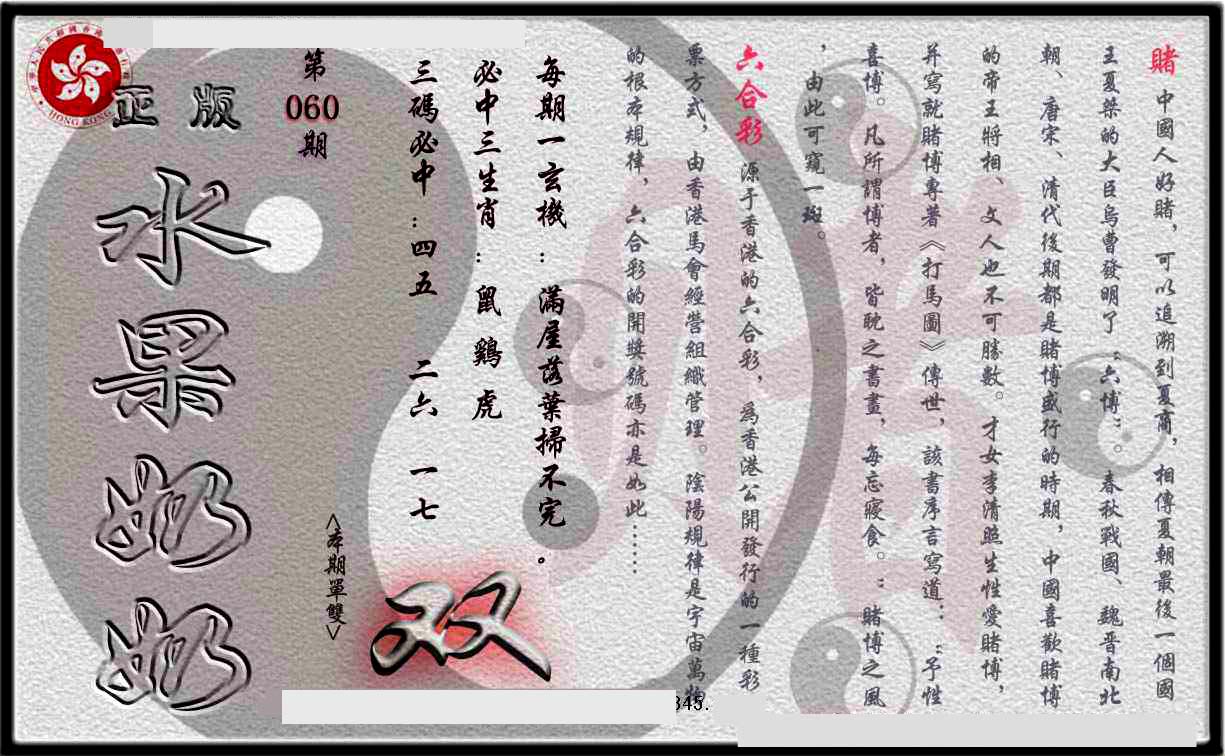 賭 中國人好賭，可以追溯到夏商，相傳夏朝最後一個國
王夏桀的大臣烏曹發明了“六博”。春秋戰國、魏晋南北
朝、唐宋、清代後期都是賭博盛行的時期，中國喜歡賭博
的帝王將相、文人也不可勝數。才女李清照生性愛賭博，
并寫就賭博專著《打馬圖》傳世，該書序言寫道：“予性
喜博。凡所謂博者，皆耽之書畫，每忘寢食。”賭博之風
，由此可窺一斑。
六合彩 源于香港的六合彩，為香港公開發行的一種彩
票方式，由香港馬會經營組織管理。陰陽規律是宇宙萬物
的根本規律，六合彩的開獎號碼亦是如此……
每期一玄機：滿屋落葉掃不完。
必中三生肖：鼠鷄虎
三碼必中：四五 二六 一七
双
<本期單雙>
第
060
期
正版
水果奶奶
HONG KONG
345.